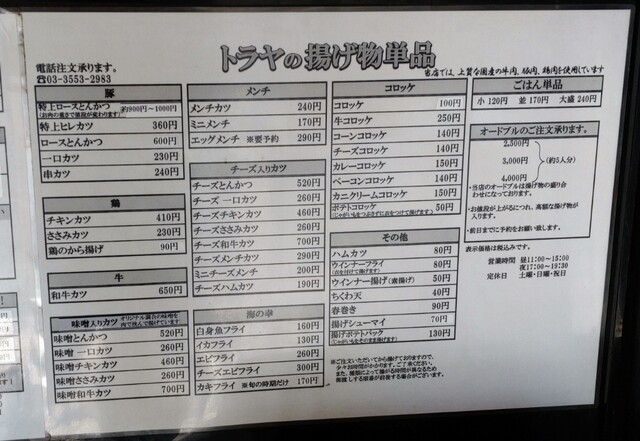 電話注文承ります。
☎03-3553-2983
トラヤの揚げ物単品
当店では、上質な国産の牛肉、豚肉、鶏肉を使用しています
豚
特上ロースとんかつ 約900円~1000円
(お肉の重さで値段が変わります)
特上ヒレカツ 360円
ロースとんかつ 600円
一口カツ 230円
串カツ 240円
鶏
チキンカツ 410円
ささみカツ 230円
鶏のから揚げ 90円
牛
和牛カツ 650円
味噌入りカツ オリジナル調合の味噌を肉で挟んで揚げています
味噌とんかつ 520円
味噌 一口カツ 260円
味噌チキンカツ 460円
味噌ささみカツ 260円
味噌和牛カツ 700円
メンチ
メンチカツ 240円
ミニメンチ 170円
エッグメンチ ※要予約 290円
チーズ入りカツ
チーズとんかつ 520円
チーズ 一口カツ 260円
チーズチキンカツ 460円
チーズささみカツ 260円
チーズ和牛カツ 700円
チーズメンチカツ 290円
ミニチーズメンチ 200円
チーズハムカツ 190円
海の幸
白身魚フライ 160円
イカフライ 130円
エビフライ 260円
チーズエビフライ 300円
カキフライ ※旬の時期だけ 170円
コロッケ
コロッケ 100円
牛コロッケ 250円
コーンコロッケ 140円
チーズコロッケ 140円
カレーコロッケ 150円
ベーコンコロッケ 140円
カニクリームコロッケ 150円
ポテトコロッケ 50円
(じゃがいもをつぶさずに衣をつけて揚げます)
その他
ハムカツ 80円
ウインナーフライ 80円
(衣を付けて揚げます)
ウインナー揚げ(素揚げ) 50円
ちくわ天 40円
春巻き 90円
揚げシューマイ 70円
揚げポテトパック 130円
(じゃがいもをそのまま揚げます)
※ご注文いただいてから揚げておりますので、
少々お時間がかかります。ご了承ください。
また、種類によって揚がる時間が異なるため
ごはん単品
小 120円 並 170円 大盛 240円
オードブルのご注文承ります。
2,500円
3,000円 (約5人分)
4,000円
・当店のオードブルは揚げ物の盛り合わせになっております。
・お値段が上がるにつれ、高額な揚げ物が入ります。
・前日までに予約をお願い致します。
表示価格は税込みです。
営業時間 昼11:00~15:00
夜17:00~19:30
定休日 土曜・日曜・祝日